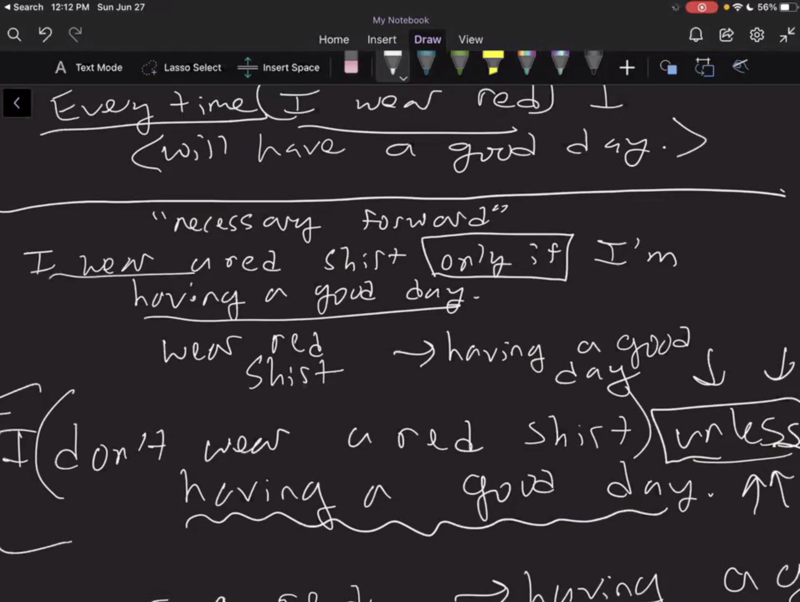 Search 12:12 PM Sun Jun 27 56%
My Notebook
Home Insert Draw View
Text Mode Lasso Select Insert Space
Every time (I wear red) I
<will have a good day.>
"necessary forward"
I wear a red shirt only if I'm
having a good day.
wear red shirt → having a good day
I (don't wear a red shirt) unless
having a good day. ↑↑
→ having a